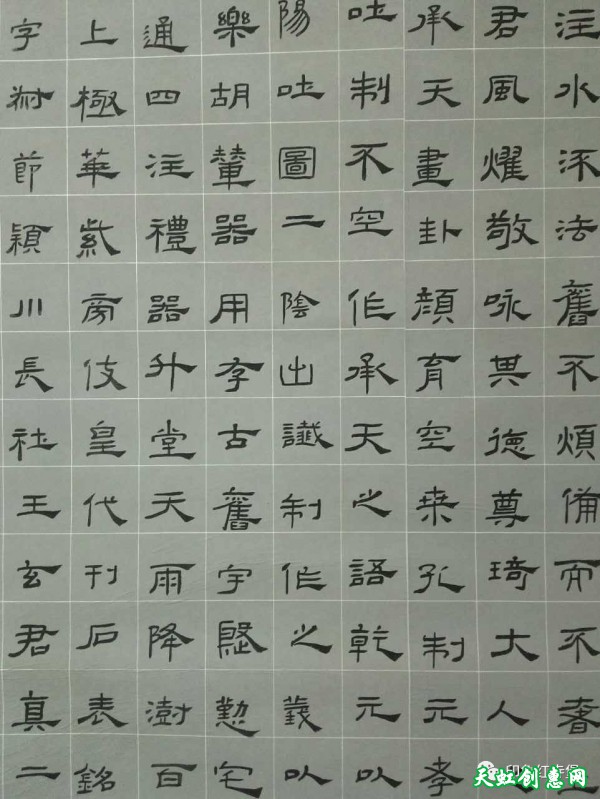 注水流法舊不煩備而不奢
君風燿敬咏其德尊琦大人
承天畫卦顏育空桑孔制元孝
吐制不空作承天之語乾元以
陽吐圖二陰出讖制作之義以
樂胡輦器用存古舊宇殷懃宅
通四注禮器升堂天雨降澍百
上極華紫旁伎皇代刊石表銘
字尌節潁川長社王玄君真二
天虹创意网